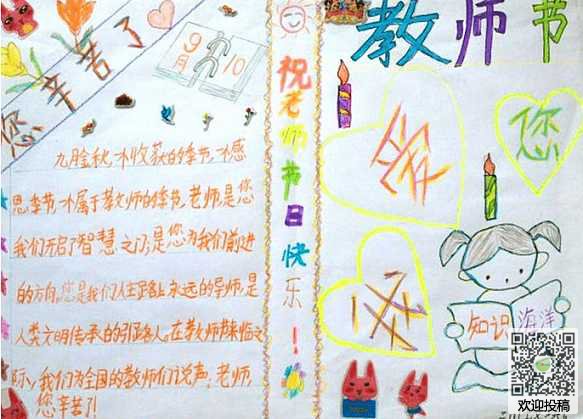 教师节
您辛苦了
9月
10
九月金秋,小收获的季节,小感
恩季节,小属于教师的季节,老师,是您
我们开启了智慧之门;是您为我们前进
的方向,您是我们人生路上永远的导师,是
人类文明传承的引路人。在教师节来临之
际,我们为全国的教师们说声:老师,
您辛苦了!
祝老师节日快乐!
您
知识海洋
欢迎投稿